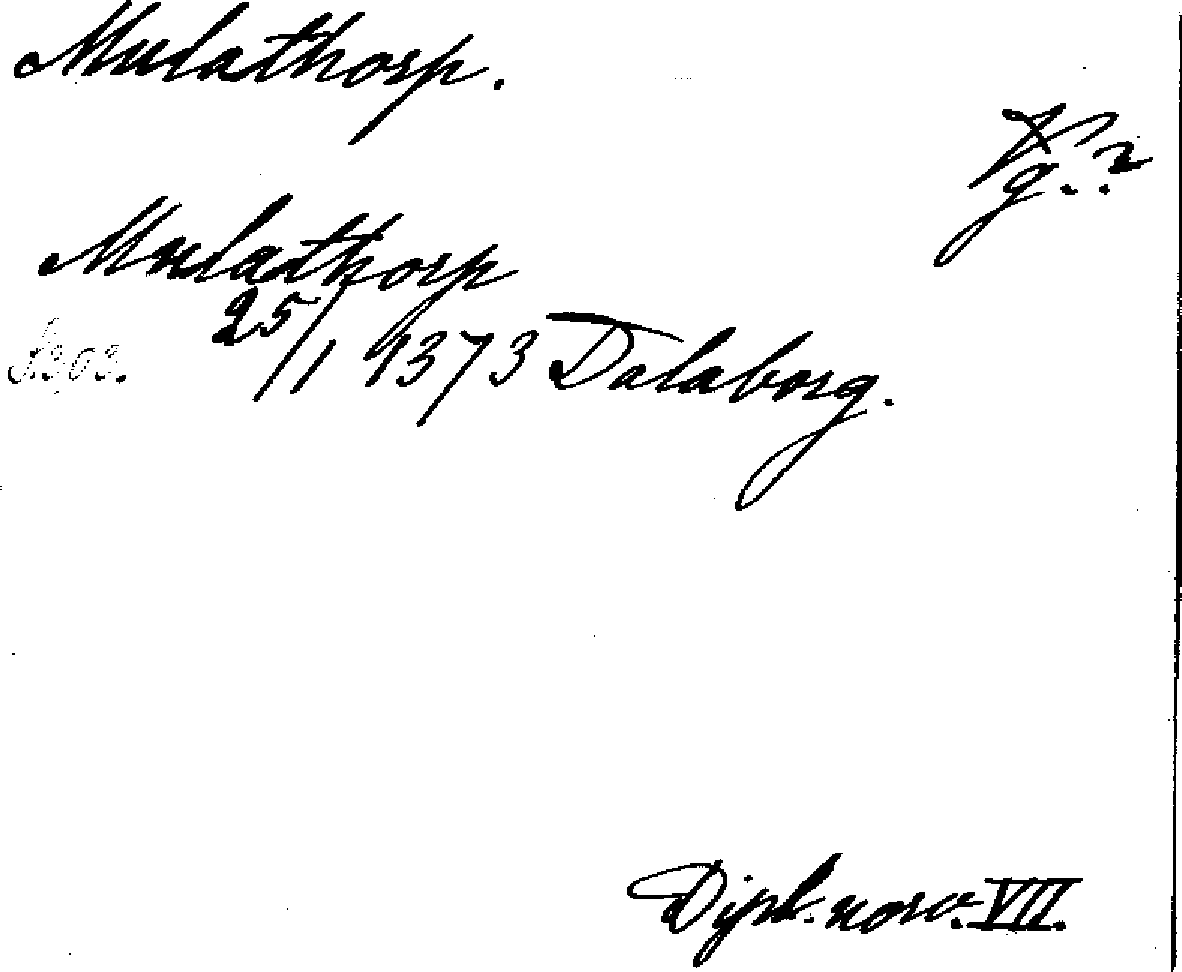 Mulathorp.
Vg.?
Mulathorp
s.303. 25/1 1373 Dalaborg.
Dipl. norv. VII.